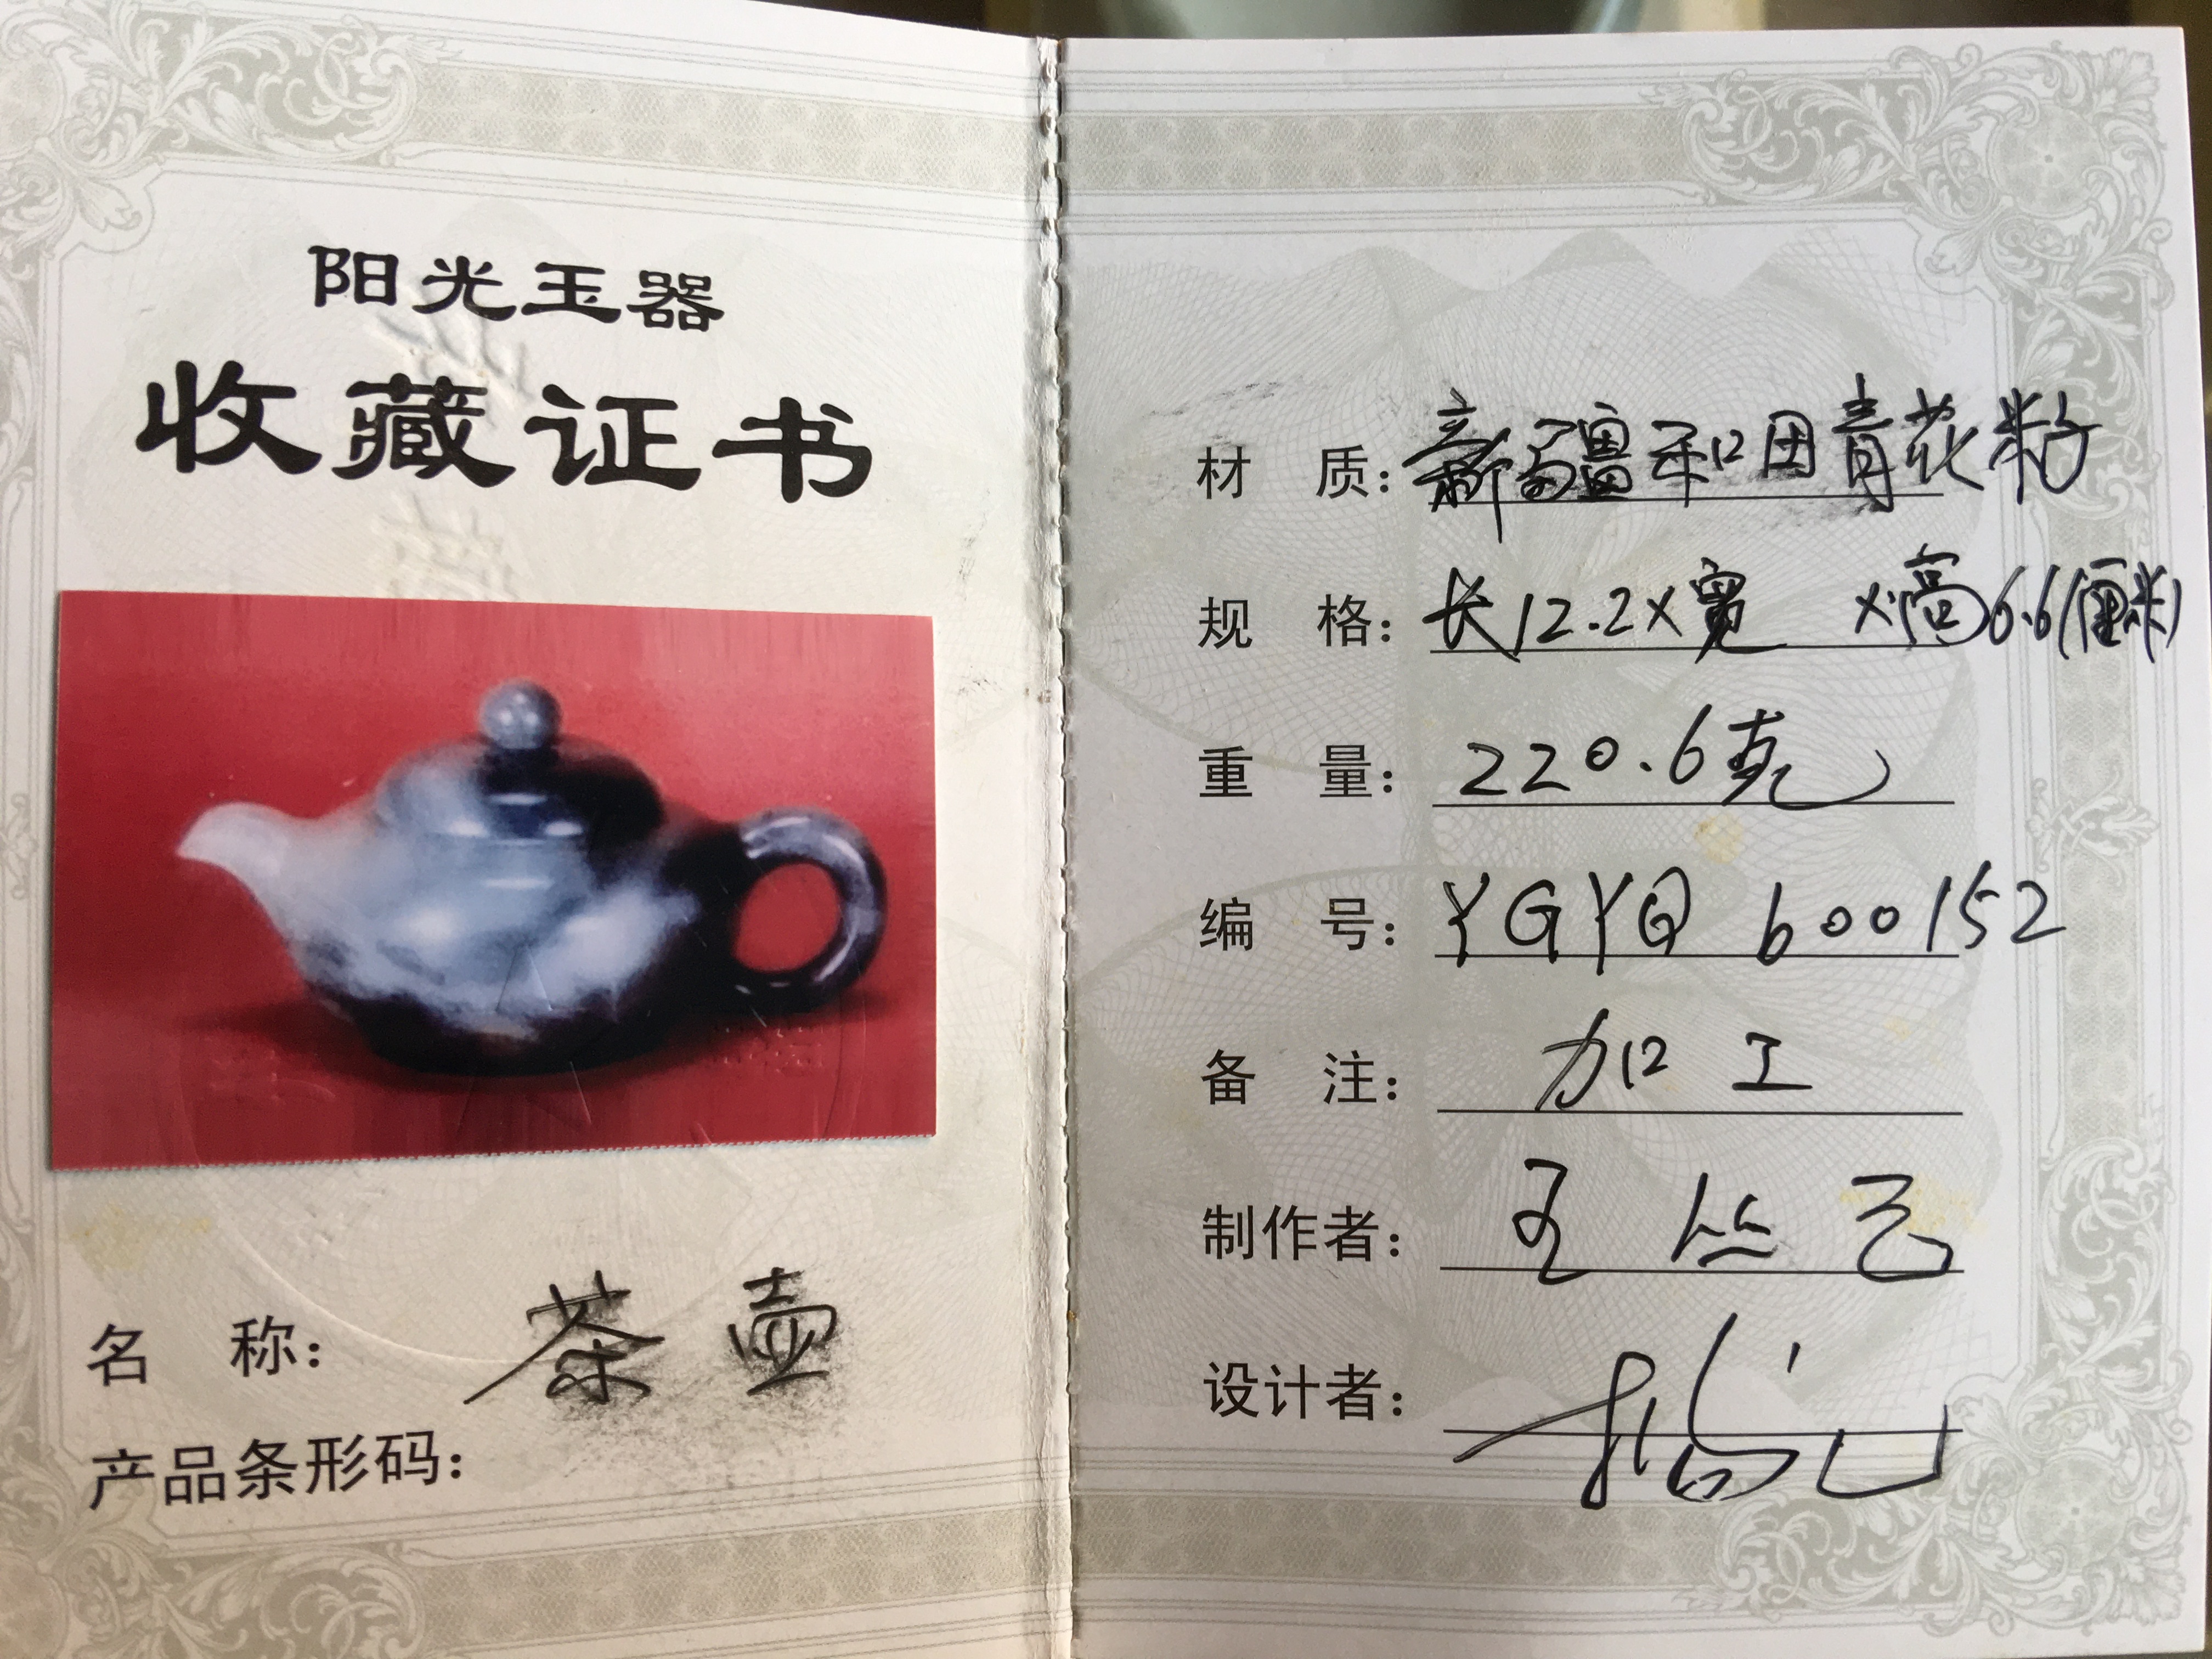 阳光玉器
收藏证书
名 称: 茶壶
产品条形码:
材 质: 新疆和田青花籽
规 格: 长12.2×宽 ×高6.6(厘米)
重 量: 220.6克
编 号: YGYQ 600152
备 注: 加工
制作者: 王
设计者: